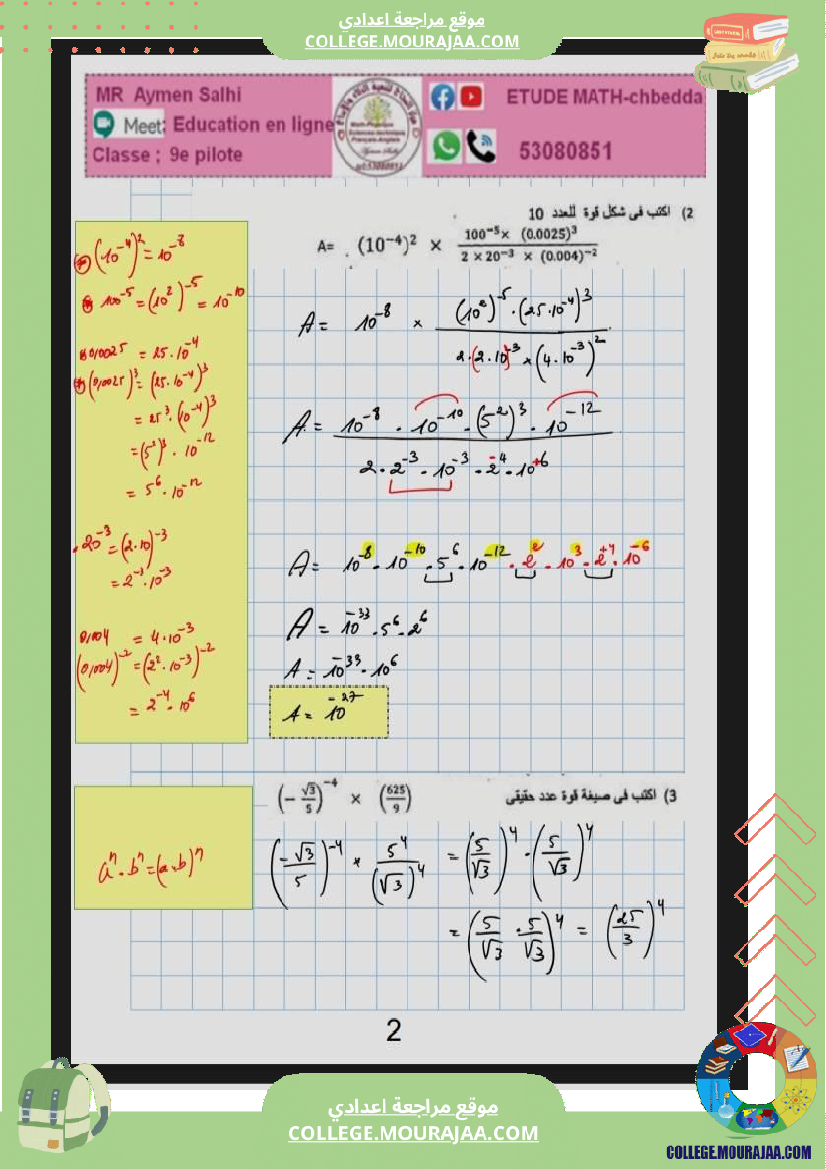 موقع مراجعة اعدادي
COLLEGE.MOURAJAA.COM
MR Aymen Salhi
Meet: Education en ligne
Classe ; 9e pilote
ETUDE MATH-chbedda
53080851
2) اكتب في شكل قوة للعدد 10
A= (10⁻⁴)² × (100⁻⁵ × (0.0025)³) / (2 × 20⁻³ × (0.004)⁻²)
(10⁻⁴)² = 10⁻⁸
100⁻⁵ = (10²)⁻⁵ = 10⁻¹⁰
0,0025 = 25·10⁻⁴
(0,0025)³ = (25·10⁻⁴)³
= 25³·(10⁻⁴)³
= (5²)³ · 10⁻¹²
= 5⁶ · 10⁻¹²
20⁻³ = (2·10)⁻³
= 2⁻³·10⁻³
0,004 = 4·10⁻³
(0,004)⁻² = (2²·10⁻³)⁻²
= 2⁻⁴·10⁶
A = 10⁻⁸ × ((10²)⁻⁵ · (25·10⁻⁴)³) / (2·(2·10)⁻³ × (4·10⁻³)⁻²)
A = (10⁻⁸ · 10⁻¹⁰ · (5²)³ · 10⁻¹²) / (2 · 2⁻³ · 10⁻³ · 2⁻⁴ · 10⁺⁶)
A = 10⁻⁸ · 10⁻¹⁰ · 5⁶ · 10⁻¹² · 2² · 10³ · 2⁺⁴ · 10⁻⁶
A = 10⁻³³ · 5⁶ · 2⁶
A = 10⁻³³ · 10⁶
A = 10⁻²⁷
3) اكتب في صيغة قوة عدد حقيقي
(-√3/5)⁻⁴ × (625/9)
aⁿ · bⁿ = (a·b)ⁿ
(-√3/5)⁻⁴ × 5⁴/(√3)⁴ = (5/√3)⁴ · (5/√3)⁴
= (5/√3 · 5/√3)⁴ = (25/3)⁴
2
موقع مراجعة اعدادي
COLLEGE.MOURAJAA.COM
COLLEGE.MOURAJAA.COM